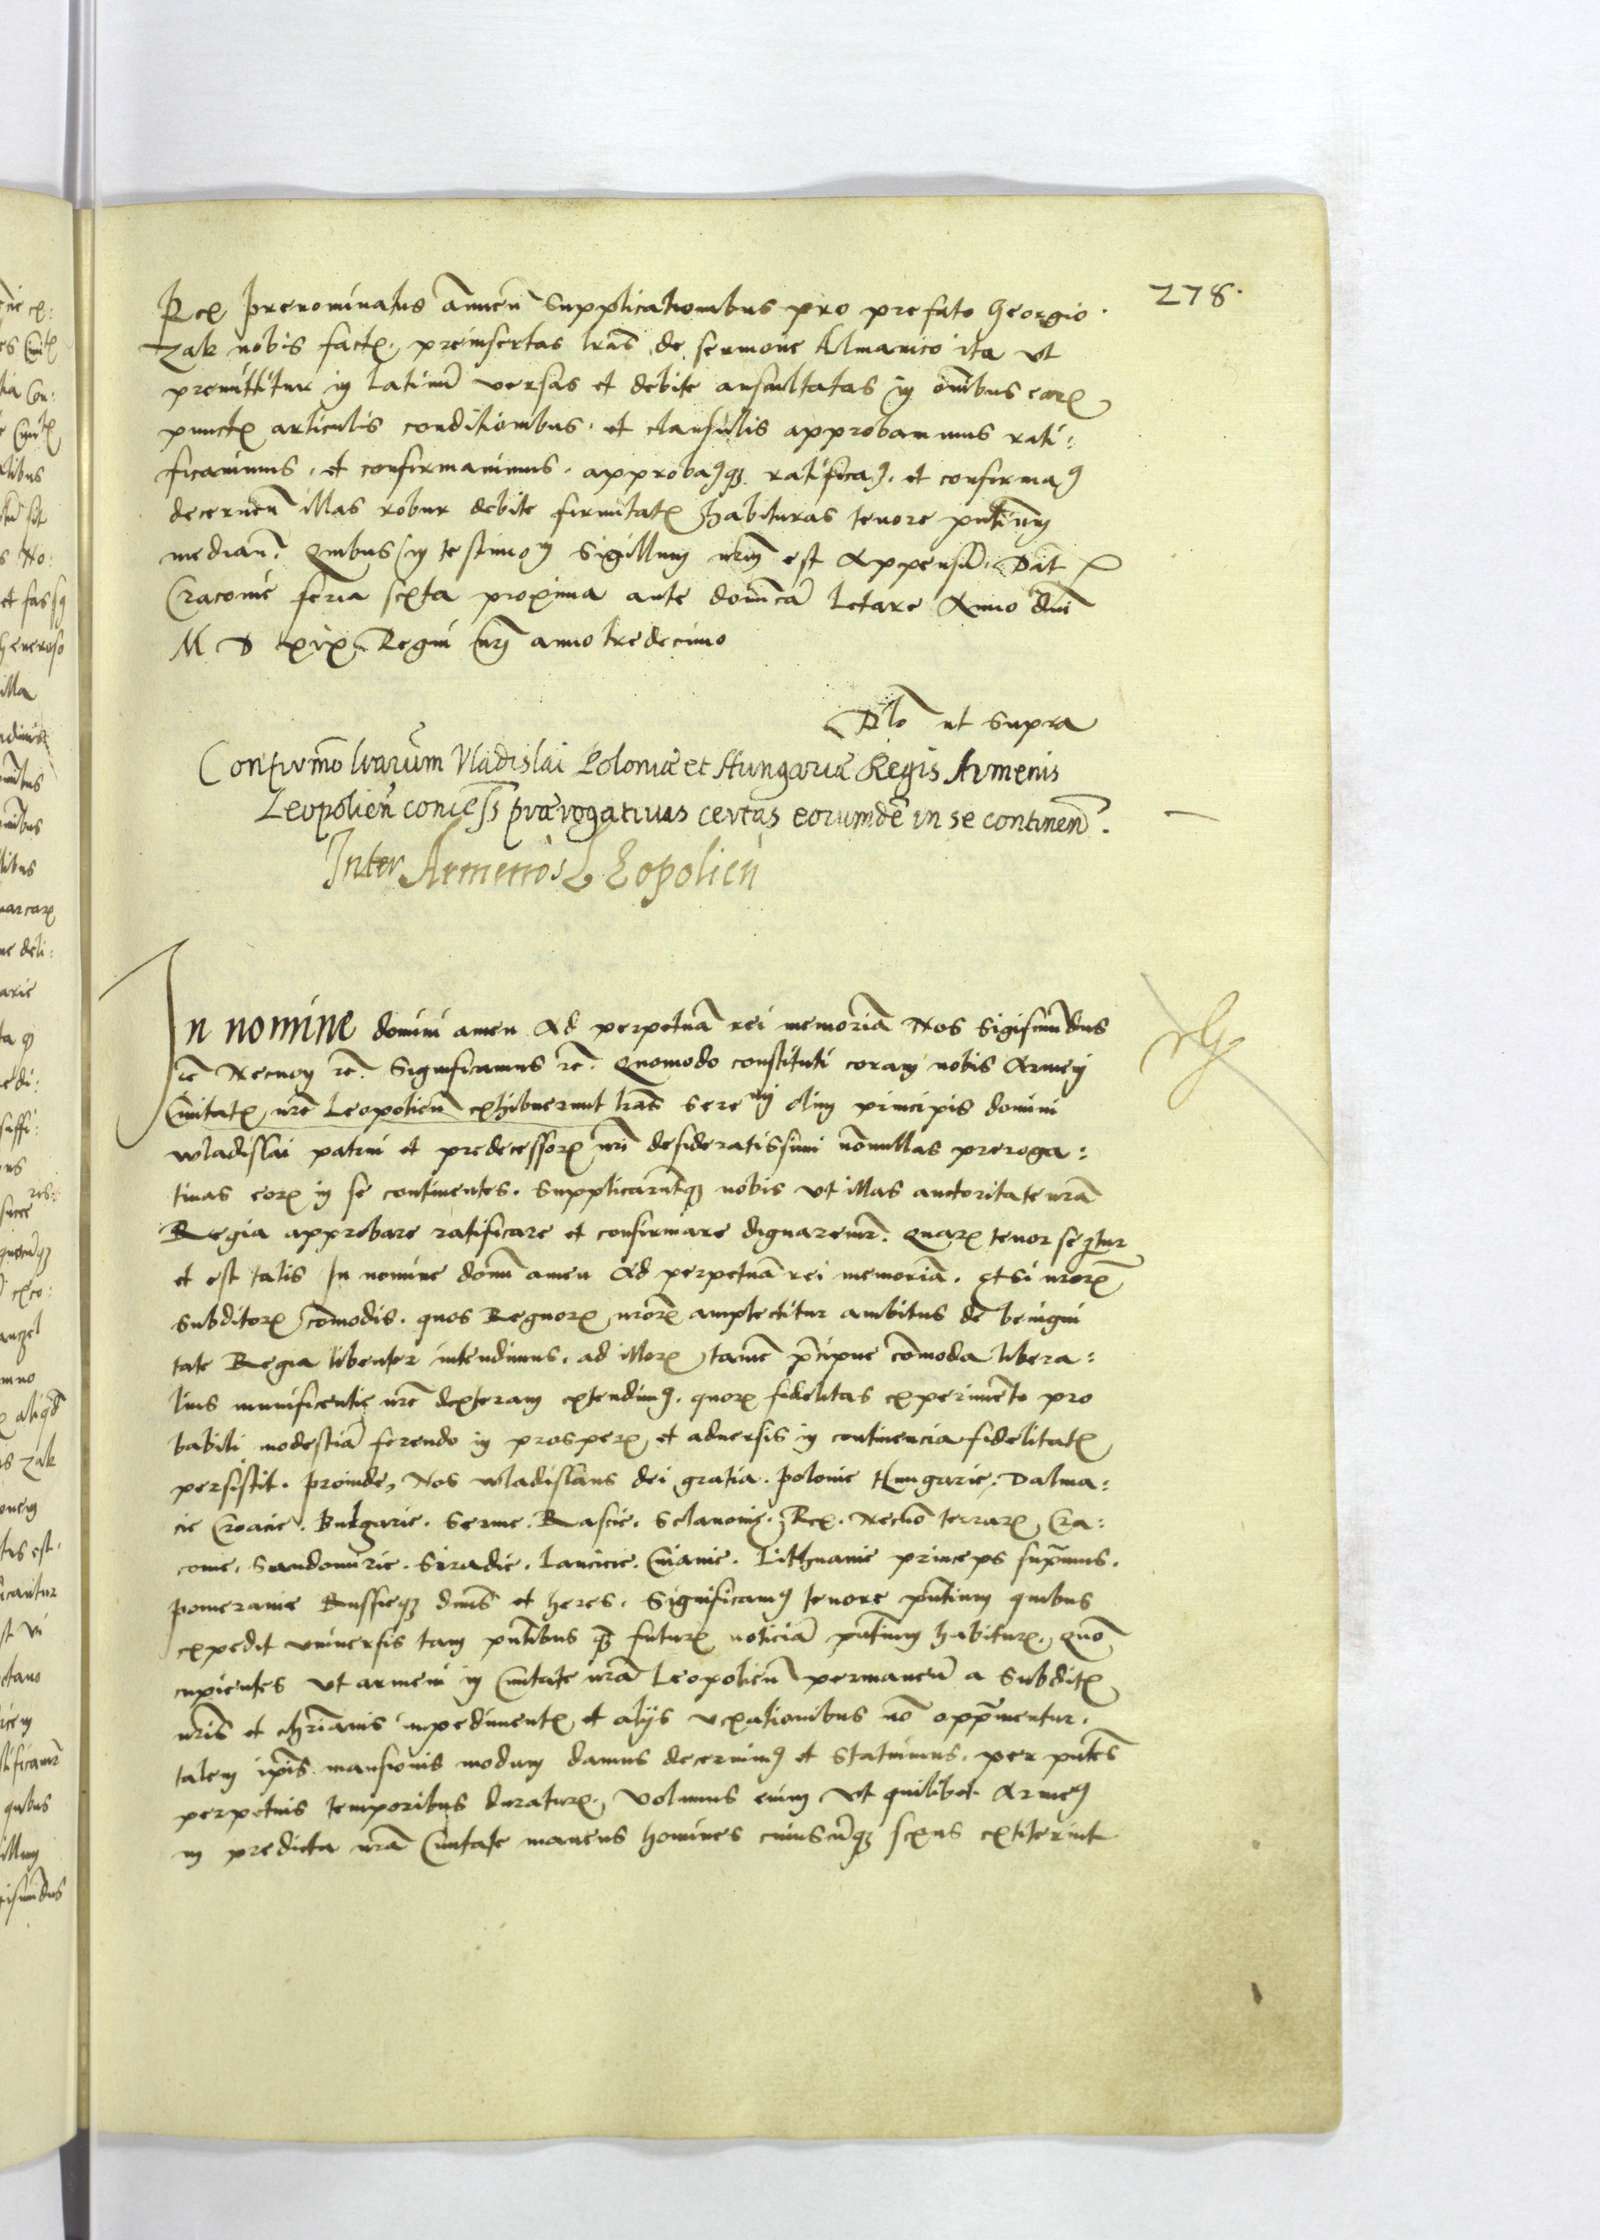 278.
Rex prenominatus annuen̄ Supplicationibus pro prefato Georgio
Zak nobis factꝭ. preinsertas l̄ras de sermone Almanico ita ut
premittitur in latinū versas et debite auscultatas in om̄ibus eorꝝ
punctꝭ articulis conditionibus. et clausulis approbavimus rati:
ficavimus. et confirmavimus. approbamꝰqꝫ ratificamꝰ. et confirmamꝰ
decernen̄ illas robur debite firmitatꝭ habituras tenore pn̄tium
median̄. Quibus in testimoniū Sigillum nr̄um est Appensū. Dat̄
Cracovie feria sexta proxima ante domīcā letare Anno dn̄i
M D xix Regni nr̄i anno tredecimo
Rl̄o ut supra
Confirmo l̄rarum Vladislai Poloniæ et Hungariæ Regis Armenis
Leopolien̄ concess prærogativas certas eorumdē in se continen̄.
Inter Armenos Leopolien̄
In nomine domini amen Ad perpetuā rei memoriā Nos Sigismūdus
ꝛc̄ Necnon ꝛc̄. Significamus ꝛc̄. Quomodo constituti coram nobis Armeni
Civitatꝭ nr̄e Leopolien̄ exhibuerunt l̄ras Serenmi olim principis domini
Wladislai patrui et predecessorꝭ nr̄i desideratissimi nōnullas preroga:
tivas eorꝝ in se continentes. Supplicarūtqꝫ nobis ut illas auctoritate nr̄a
Regia approbare ratificare et confirmare dignaremr̄. Quarꝝ tenor seqꝛtur
et est talis In nomine domī amen Ad perpetuā rei memoriā. Etsi nr̄orꝝ
Subditorꝝ cōmodis. quos Regnorꝝ nr̄orꝝ amplectitur ambitus de benigni
tate Regia libenter intendimus. ad illorꝝ tamē p̄cipue cōmoda libera:
lius munificentie nr̄e dexteram extendimꝰ. quorꝝ fidelitas experimēto pro
babili modestiā ferendo in prosperꝭ et adversis in continencia fidelitatꝭ
persistit. Proinde, Nos Wladislaus dei gratia. Polonie Hungarie. Dalma:
cie Croacie. Bulgarie. Servie. Rascie. Sclavonie. Rex. Necnō terrarꝝ Cra:
covie. Sandomirie. Siradie. Lancicie. Cuiavie. Lithuanie princeps sup̄mus.
Pomeranie Russieqꝫ dn̄us et heres. Significamꝰ tenore pn̄tium quibus
expedit universis tam pn̄tibus qꝫ futurꝭ noticiā pn̄tium habiturꝭ. Quō
cupientes ut armeni in Civitate nr̄a Leopolien̄ permanen̄ a Subditꝭ
nr̄is et chr̄ianis impedimentꝭ et alijs vexationibus nō opp̄mentur.
talem ip̄is mansionis modum damus decernimꝰ et Statuimus. per pn̄tes
perpetuis temporibus duraturꝭ. Volumus enim ut quilibet Armenꝰ
in predicta nr̄a Civitate manens homines cuiuscūqꝫ sexus extiterint